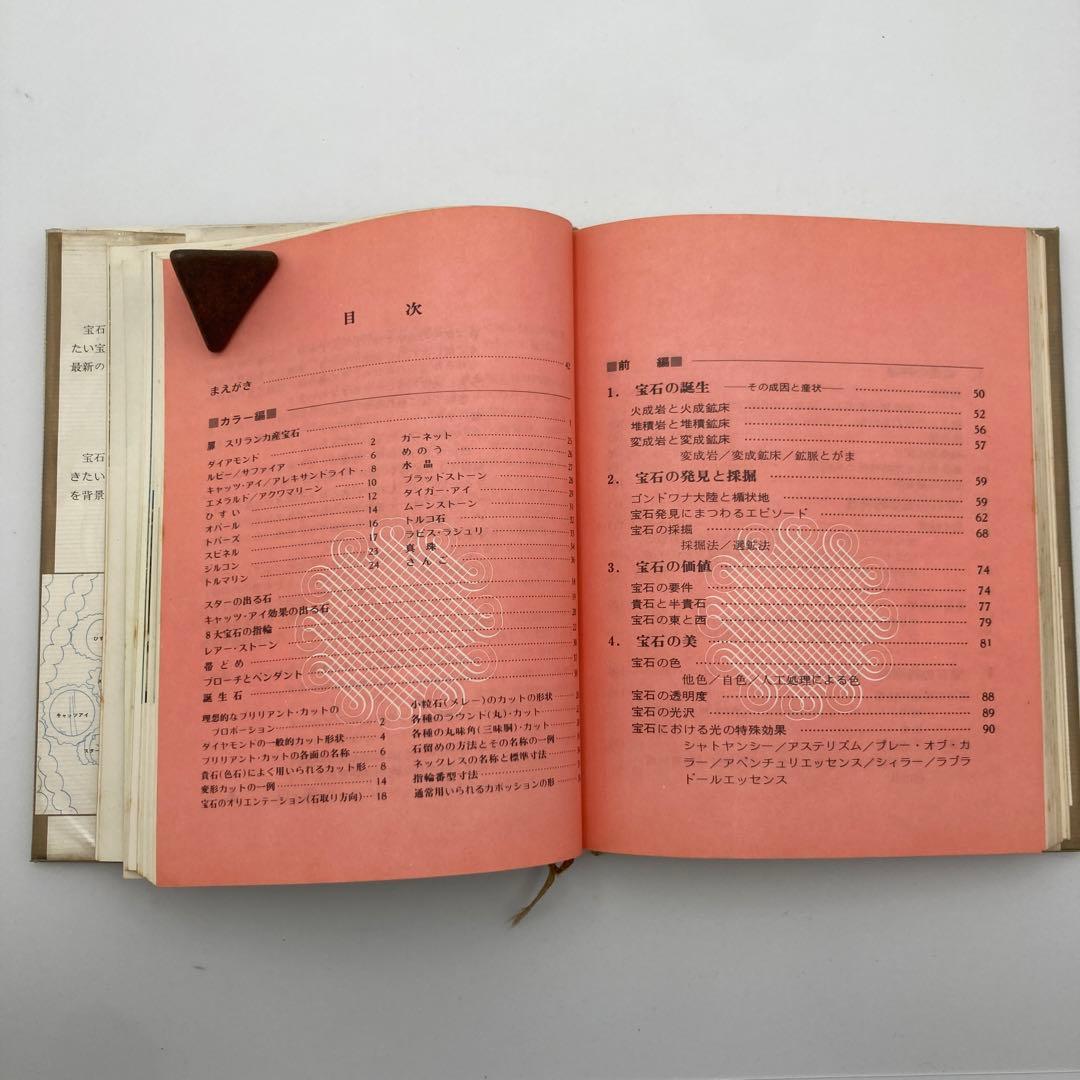 宝石
たい宝
最新の
宝石
きたい
を背景
キャッツアイ
目 次
まえがき 42
■カラー編■ 1
扉 スリランカ産宝石
ダイアモンド 2
ルビー/サファイア 6
キャッツ・アイ/アレキサンドライト 8
エメラルド/アクワマリーン 10
ひすい 12
オパール 14
トパーズ 16
スピネル 17
ジルコン 23
トルマリン 24
ガーネット 25
めのう 26
水 晶 27
ブラッドストーン
タイガー・アイ
ムーンストーン
トルコ石
ラピス・ラジュリ
真 珠
さんご
スターの出る石
キャッツ・アイ効果の出る石
8大宝石の指輪
レアー・ストーン
帯どめ
ブローチとペンダント
誕生石
理想的なブリリアント・カットの
プロポーション 2
ダイヤモンドの一般的カット形状 4
ブリリアント・カットの各面の名称 6
貴石(色石)によく用いられるカット形 8
変形カットの一例 14
宝石のオリエンテーション(石取り方向) 18
小粒石(メレー)のカットの形状
各種のラウンド(丸)・カット
各種の丸味角(三味胴)・カット
石留めの方法とその名称の一例
ネックレスの名称と標準寸法
指輪番型寸法
通常用いられるカボッションの形
■前 編■
1. 宝石の誕生 ——その成因と産状—— 50
火成岩と火成鉱床 52
堆積岩と堆積鉱床 56
変成岩と変成鉱床 57
変成岩/変成鉱床/鉱脈とがま
2. 宝石の発見と採掘 59
ゴンドワナ大陸と楯状地 59
宝石発見にまつわるエピソード 62
宝石の採掘 68
採掘法/選鉱法
3. 宝石の価値 74
宝石の要件 74
貴石と半貴石 77
宝石の東と西 79
4. 宝石の美 81
宝石の色
他色/自色/人工処理による色
宝石の透明度 88
宝石の光沢 89
宝石における光の特殊効果 90
シャトヤンシー/アステリズム/プレー・オブ・カ
ラー/アベンチュリエッセンス/シィラー/ラブラ
ドールエッセンス